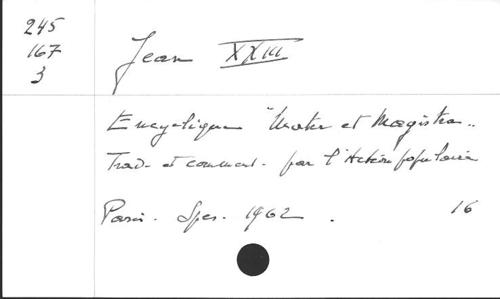 245
167
3
Jean XXIII
Encyclique "Mater et Magistra"
Trad. et comment. par l'Action populaire
Paris. Spes. 1962. 16